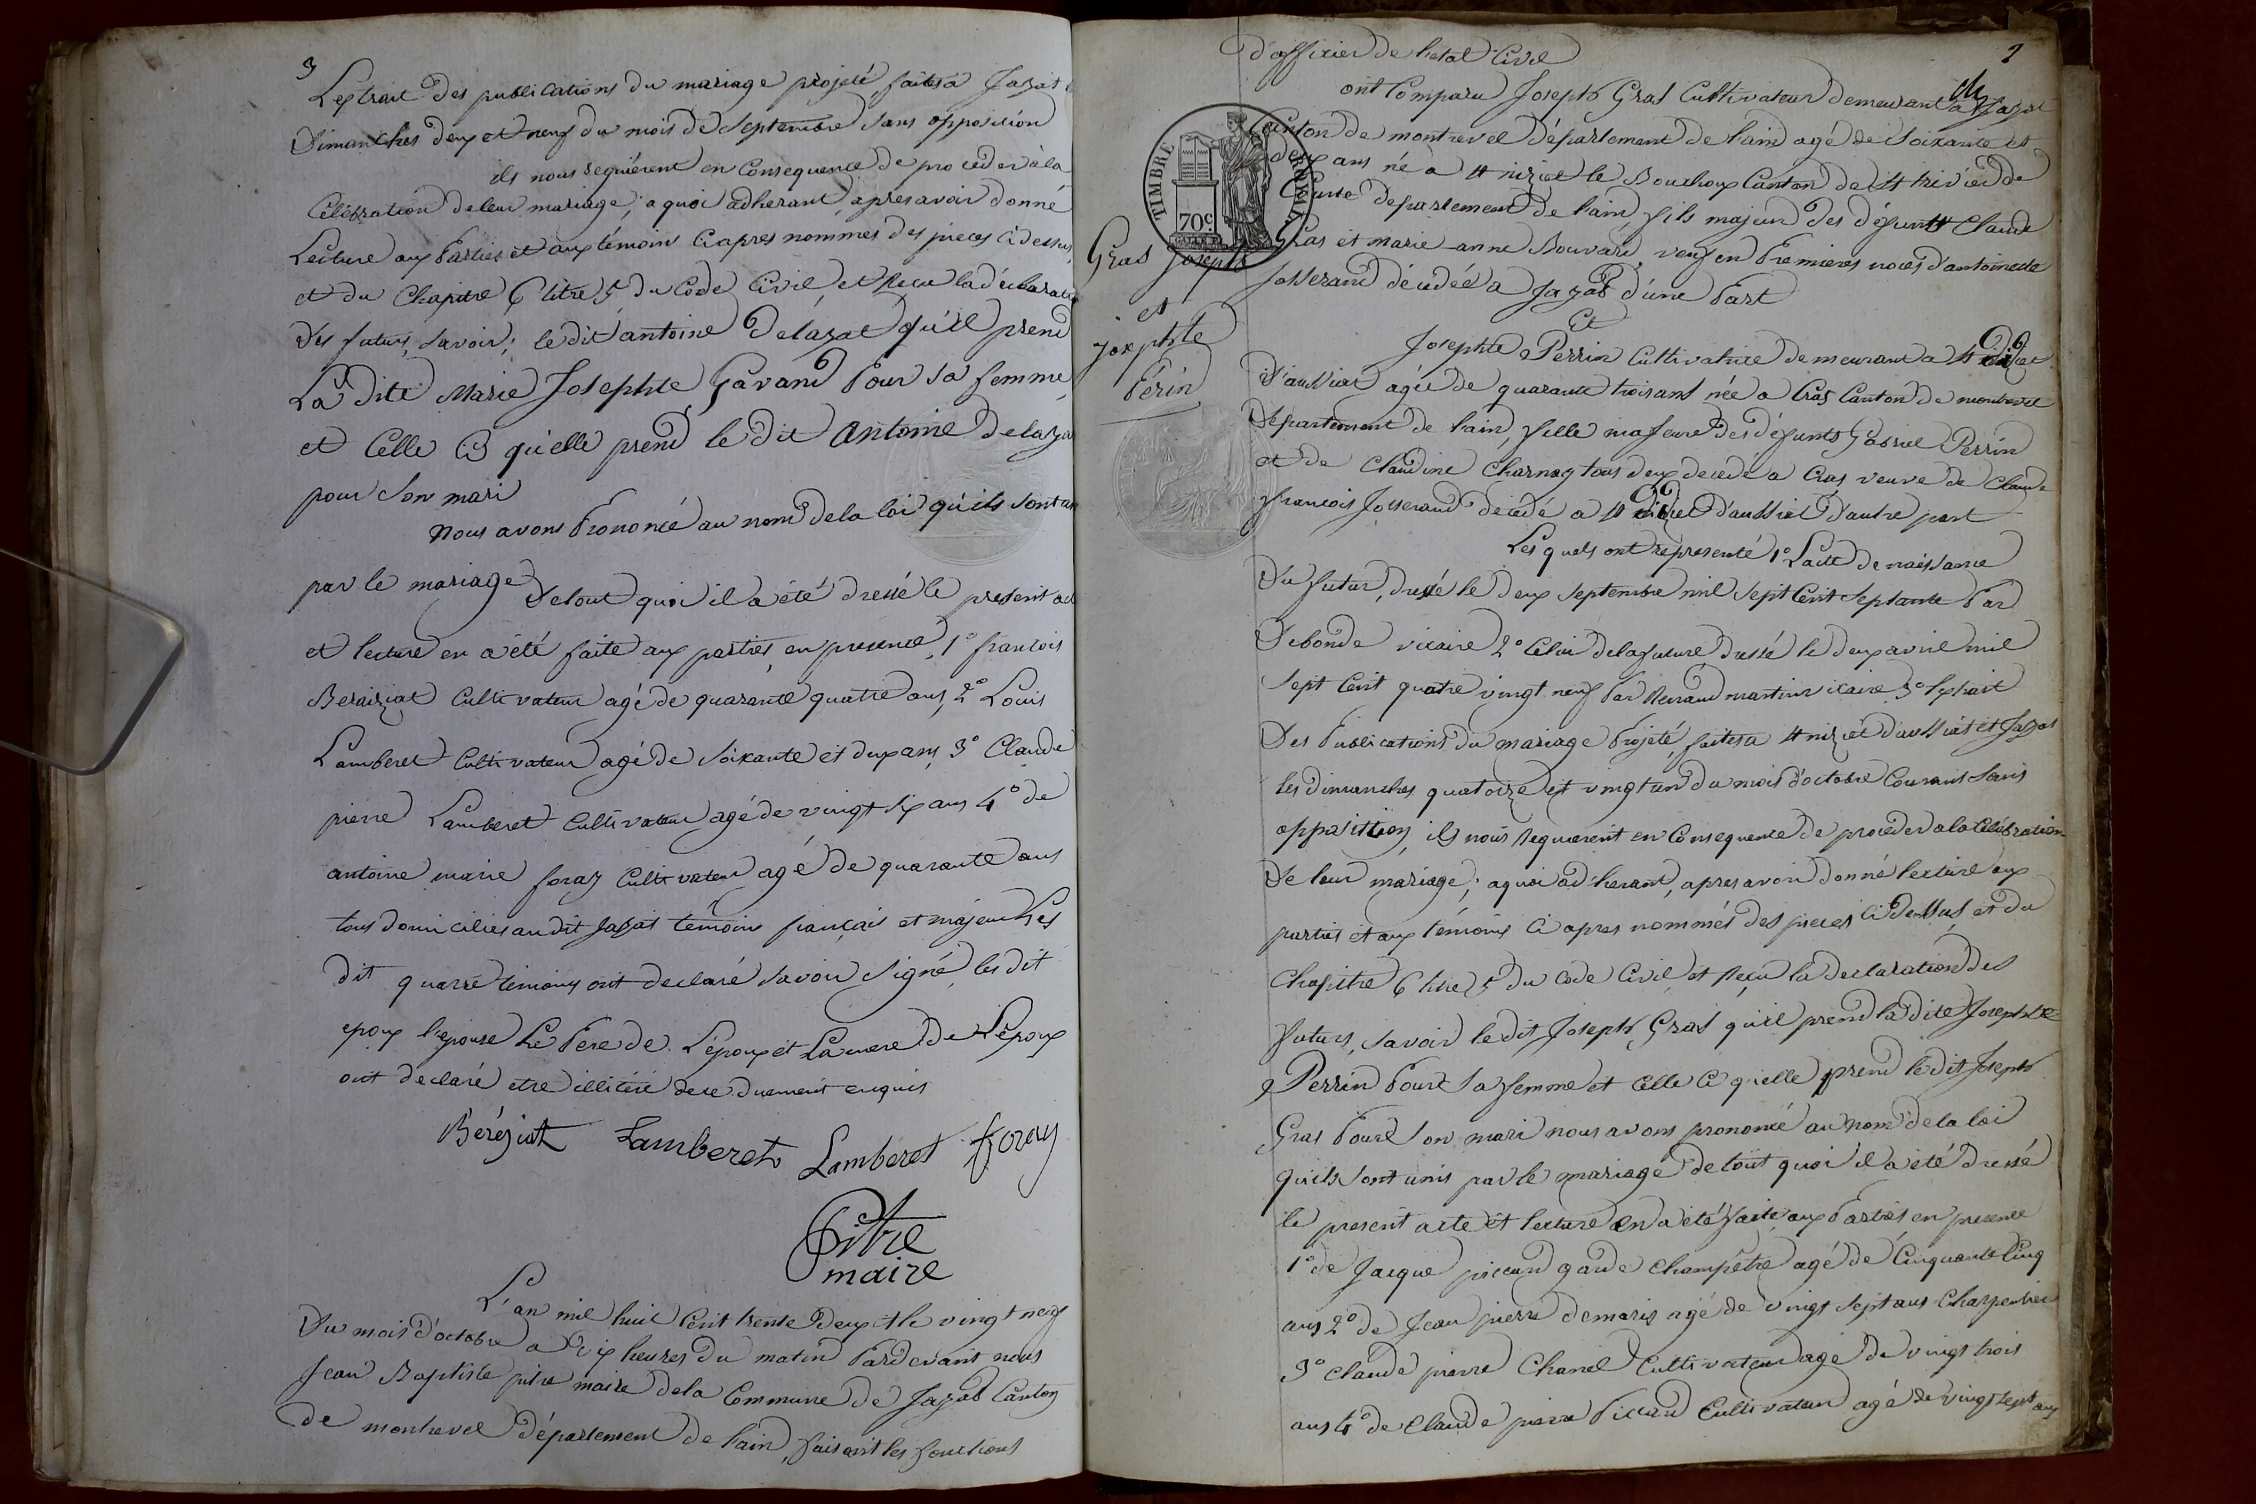 3
L'extrait des publications du mariage projeté, faites à Jayat
Dimanches deux et neuf du mois de Septembre sans opposition
ils nous requièrent en Consequence de proceder à la
Célébration de leur mariage; a quoi adherant, apres avoir donné
Lecture aux Parties et aux témoins Ciapres nommes des pieces Cidessus
et du Chapitre 6 titre 5 du Code Civil et Reçu la déclaration
des futurs, Savoir; le dit antoine Delazat qu'il prend
La dite Marie Josephte Gavand Pour Sa femme
et Celle Ci qu'elle prend le dit Antoine Delaza
pour Son mari
Nous avons Prononcé au nom de la loi qu'ils sont
par le mariage De tout quoi il a été dressé le present
et lecture en a été faite aux parties, en presence, 1° francois
Beraiziat Cultivateur agé de quarante quatre ans, 2° Louis
Lamberet Cultivateur agé de soixante et deux ans, 3° Claude
pierre Lamberet Cultivateur agé de vingt six ans 4° de
antoine marie foray Cultivateur agé de quarante ans
tous domiciliés au dit Jayat témoins français et majeurs Les
dit quatre témoins ont declaré savoir signé, les dit
epoux l'epouse Le Pere de L'époux et La mere de L'époux
ont declaré etre illitéré de ce duement enquis
Béréziat Lamberet Lamberet foray
Pitre
maire
L'an mil huit Cent trente deux et le vingt neuf
Du mois d'octobre a dix heures du matin Pardevant nous
Jean Baptiste pitre maire de la Commune de Jayat Canton
de montrevel département de l'ain, faisant les fonctions
2
d'officier de l'etat Civil
ont Comparu Joseph Gras Cultivateur demeurant a Jayat
Canton de montrevel département de l'ain agé de Soixante et
deux ans né a St nizier le Bouchoux Canton de St trivier de
Courte departement de l'ain, fils majeur des défunts Claude
Gras et marie anne Bouvard, veuf en Premieres noces d'antoinette
Josserand décedée a Jayat d'une Part
TIMBRE ROYAL
70c
Gras Joseph
et
Josephte
Périn
Et
Josephte Perrin Cultivatrice demeurant a St
D'aussiat agée de quarante trois ans née a Cras Canton de montrevel
Departement de l'ain, fille majeure des défunts Gabriel Perrin
et de Claudine Charnay tous deux decedé a Cras veuve de Claude
francois Josserand decédé a St d'aussiat D'autre part
Lesquels ont représenté 1° L'acte de naissance
Du futur, dressé le deux septembre mil sept Cent Septante Par
Debonde vicaire 2° Celui de la future dressé le deux avril mil
Sept Cent quatre vingt neuf Par Renaud martin vicaire 3° l'extrait
Des Publications du mariage Projeté, faites a St nizier d'aussiat et Jayat
les dimanches quatorze et vingt un du mois d'octobre Courant Sans
opposition, ils nous requierent en Consequence de proceder a la Célébration
De leur mariage; a quoi adherant, apres avoir donné lecture aux
parties et aux témoins Ci apres nommés des pieces Ci Dessus et du
Chapitre 6 titre 5 du Code Civil, et Reçu la declaration des
futurs, Savoir le dit Joseph Gras qu'il prend la dite Josephte
Perrin Pour Sa femme et Celle Ci qu'elle prend le dit Joseph
Gras Pour Son mari nous avons prononcé au nom de la loi
qu'ils Sont unis par le mariage De tout quoi il a été dressé
le present acte et lecture en a été faite aux Parties, en presence
1° de Jacque piccand garde Champêtre agé de Cinquante Cinq
ans 2° de Jean pierre demaris agé de vingt Sept ans Charpentier
3° claude pierre Chanel Cultivateur agé de vingt trois
ans 4° de Claude pierre Piccand Cultivateur agé de vingt sept ans